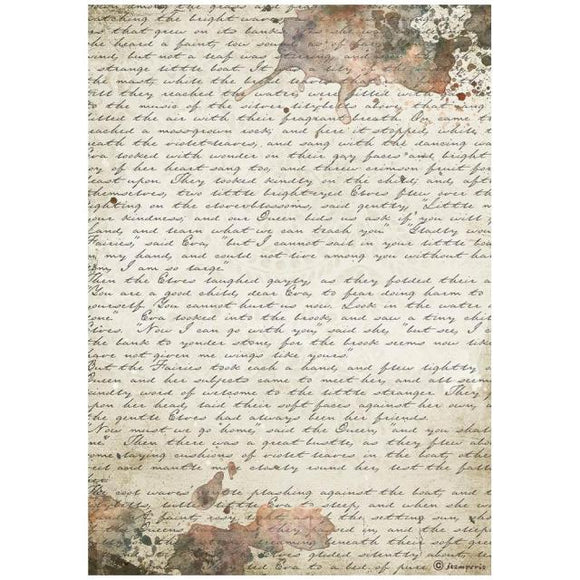 atching the bright waves
s that grew on its bank
he heard a faint, low sou
nd, but not a leaf was stirring, and
strange little boat. I
the mast, while the
ill they reached the water, were filled with
to the music of the silver lilybells above, that
illed the air with their fragrant breath. On came t
eached a moss-grown rock; and here it stopped, while
eath the violet-leaves, and sang with the dancing wa
Eva looked with wonder on their gay faces and bright
oy of her heart sang too, and threw crimson fruit for
east upon. They looked kindly on the child, and, aft
hemselves, two little bright-eyed Elves flew over th
ighting on the clover-blossoms, said gently, "Little m
our kindness; and our Queen bids us ask if you will g
land, and learn what we can teach you." "Gladly wou
Fairies," said Eva, "but I cannot sail in your little boa
n my hand, and could not live among you without har
ny, I am so large."
hen the Elves laughed gayly, as they folded their a
You are a good child, dear Eva, to fear doing harm to
yourself. You cannot hurt us now. Look in the water a
one." Eva looked into the brook, and saw a tiny chil
Elves. "Now I can go with you," said she, "but see, I c
the bank to yonder stone, for the brook seems now like
have not given me wings like yours."
But the Fairies took each a hand, and flew lightly
Queen and her subjects came to meet her, and all seem
kindly word of welcome to the little stranger. They p
pon her head, laid their soft faces against her own,
he gentle Elves had always been her friends.
Now must we go home," said the Queen, "and you sha
ne." Then there was a great bustle, as they flew abo
ome laying cushions of violet leaves in the boat, other
eil and mantle more closely round her, lest the falli
he cool waves' plashing against the boat, and t
Eva to sleep, and when she aw
the setting sun, sh
passed in, and
ent
glided silently about,
to a bed, of pure
© Stamperia